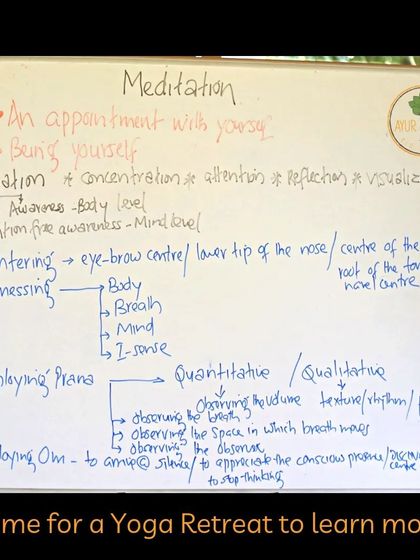 Meditation
• An appointment with yourself
• Being yourself
ation * concentration * attention * Reflection * visualiz
Awareness - Body level
tion free awareness - Mind level
AYUR
ntering → eye-brow centre / lower tip of the nose / centre of the
root of the to
navel centre
nessing → Body
→ Breath
→ Mind
→ I-sense
ploying Prana → Quantitative / Qualitative
Observing the volume texture / rhythm /
→ observing the breath
→ Observing the space in which breath moves
→ observing the observer
ploying Om - to arrive @ silence / to appreciate the conscious presence /
centre
to stop-thinking
me for a Yoga Retreat to learn mo